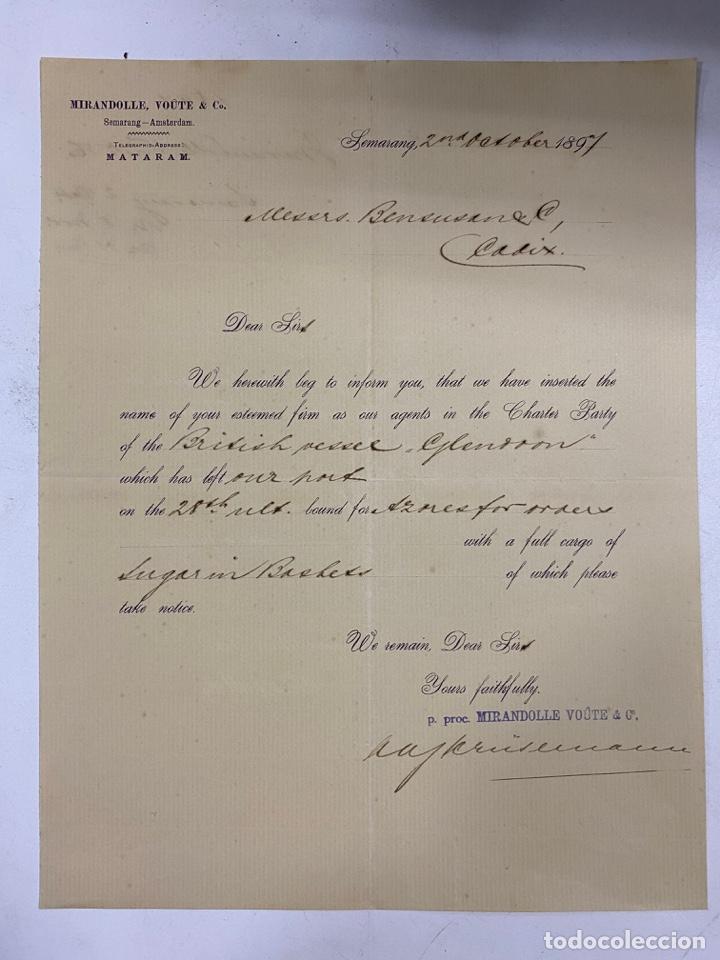 MIRANDOLLE, VOÛTE & Co.
Semarang—Amsterdam.
TELEGRAPHIC-ADDRESS:
MATARAM.
Semarang, 2nd October 1897
Messrs. Bensusan & Co,
Cadix.
Dear Sirs
We herewith beg to inform you, that we have inserted the
name of your esteemed firm as our agents in the Charter Party
of the British vessel „Glendoon"
which has left our port
on the 28th ult. bound for Azores for orders
with a full cargo of
Sugar in Baskets of which please
take notice.
We remain, Dear Sirs
Yours faithfully.
p. proc. MIRANDOLLE VOÛTE & Co.
Krüsemann
todocoleccion.net